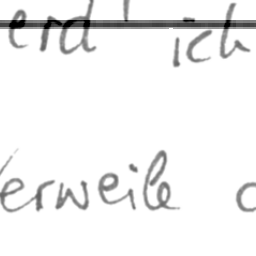 erd' ich
erweile d